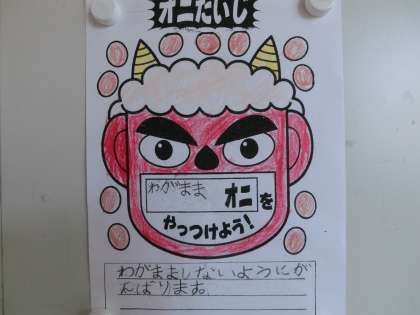 オニたいじ
わがまま オニを
やっつけよう!
わがままましないようにが
んばります。